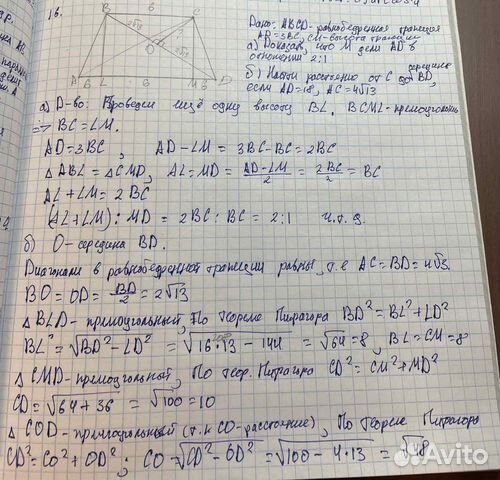 16.
B 6 C
2√13
O
2√13
A 6 L 6 M 6 D
Дано: ABCD-равнобедренная трапеция
AD=3BC, CM-высота трапеции
а) Доказать, что M делит AD в
отношении 2:1
б) Найти расстояние от C до середины BD,
если AD=18, AC=4√13
а) Д-во: Проведем ещё одну высоту BL. BCML-прямоугольник
=> BC=LM.
AD=3BC, AD-LM = 3BC-BC=2BC
△ABL=△CMD, AL=MD= AD-LM/2 = 2BC/2 = BC
AL+LM=2BC
(AL+LM):MD = 2BC:BC = 2:1 ч.т.д.
б) O-середина BD.
Диагонали в равнобедренной трапеции равны, т.е AC=BD=4√13.
BO=OD= BD/2 = 2√13
△BLD-прямоугольный, По Теореме Пифагора BD²=BL²+LD²
BL²=√BD²-LD² = √16·13-144 = √64=8, BL=CM=8
△CMD-прямоугольный, По Теор. Пифагора CD²=CM²+MD²
CD=√64+36 = √100=10
△COD-прямоугольный (т.к CO-расстояние), По Теореме Пифагора
CD²=CO²+OD²; CO=√CD²-OD² = √100-4·13 = √48
Avito